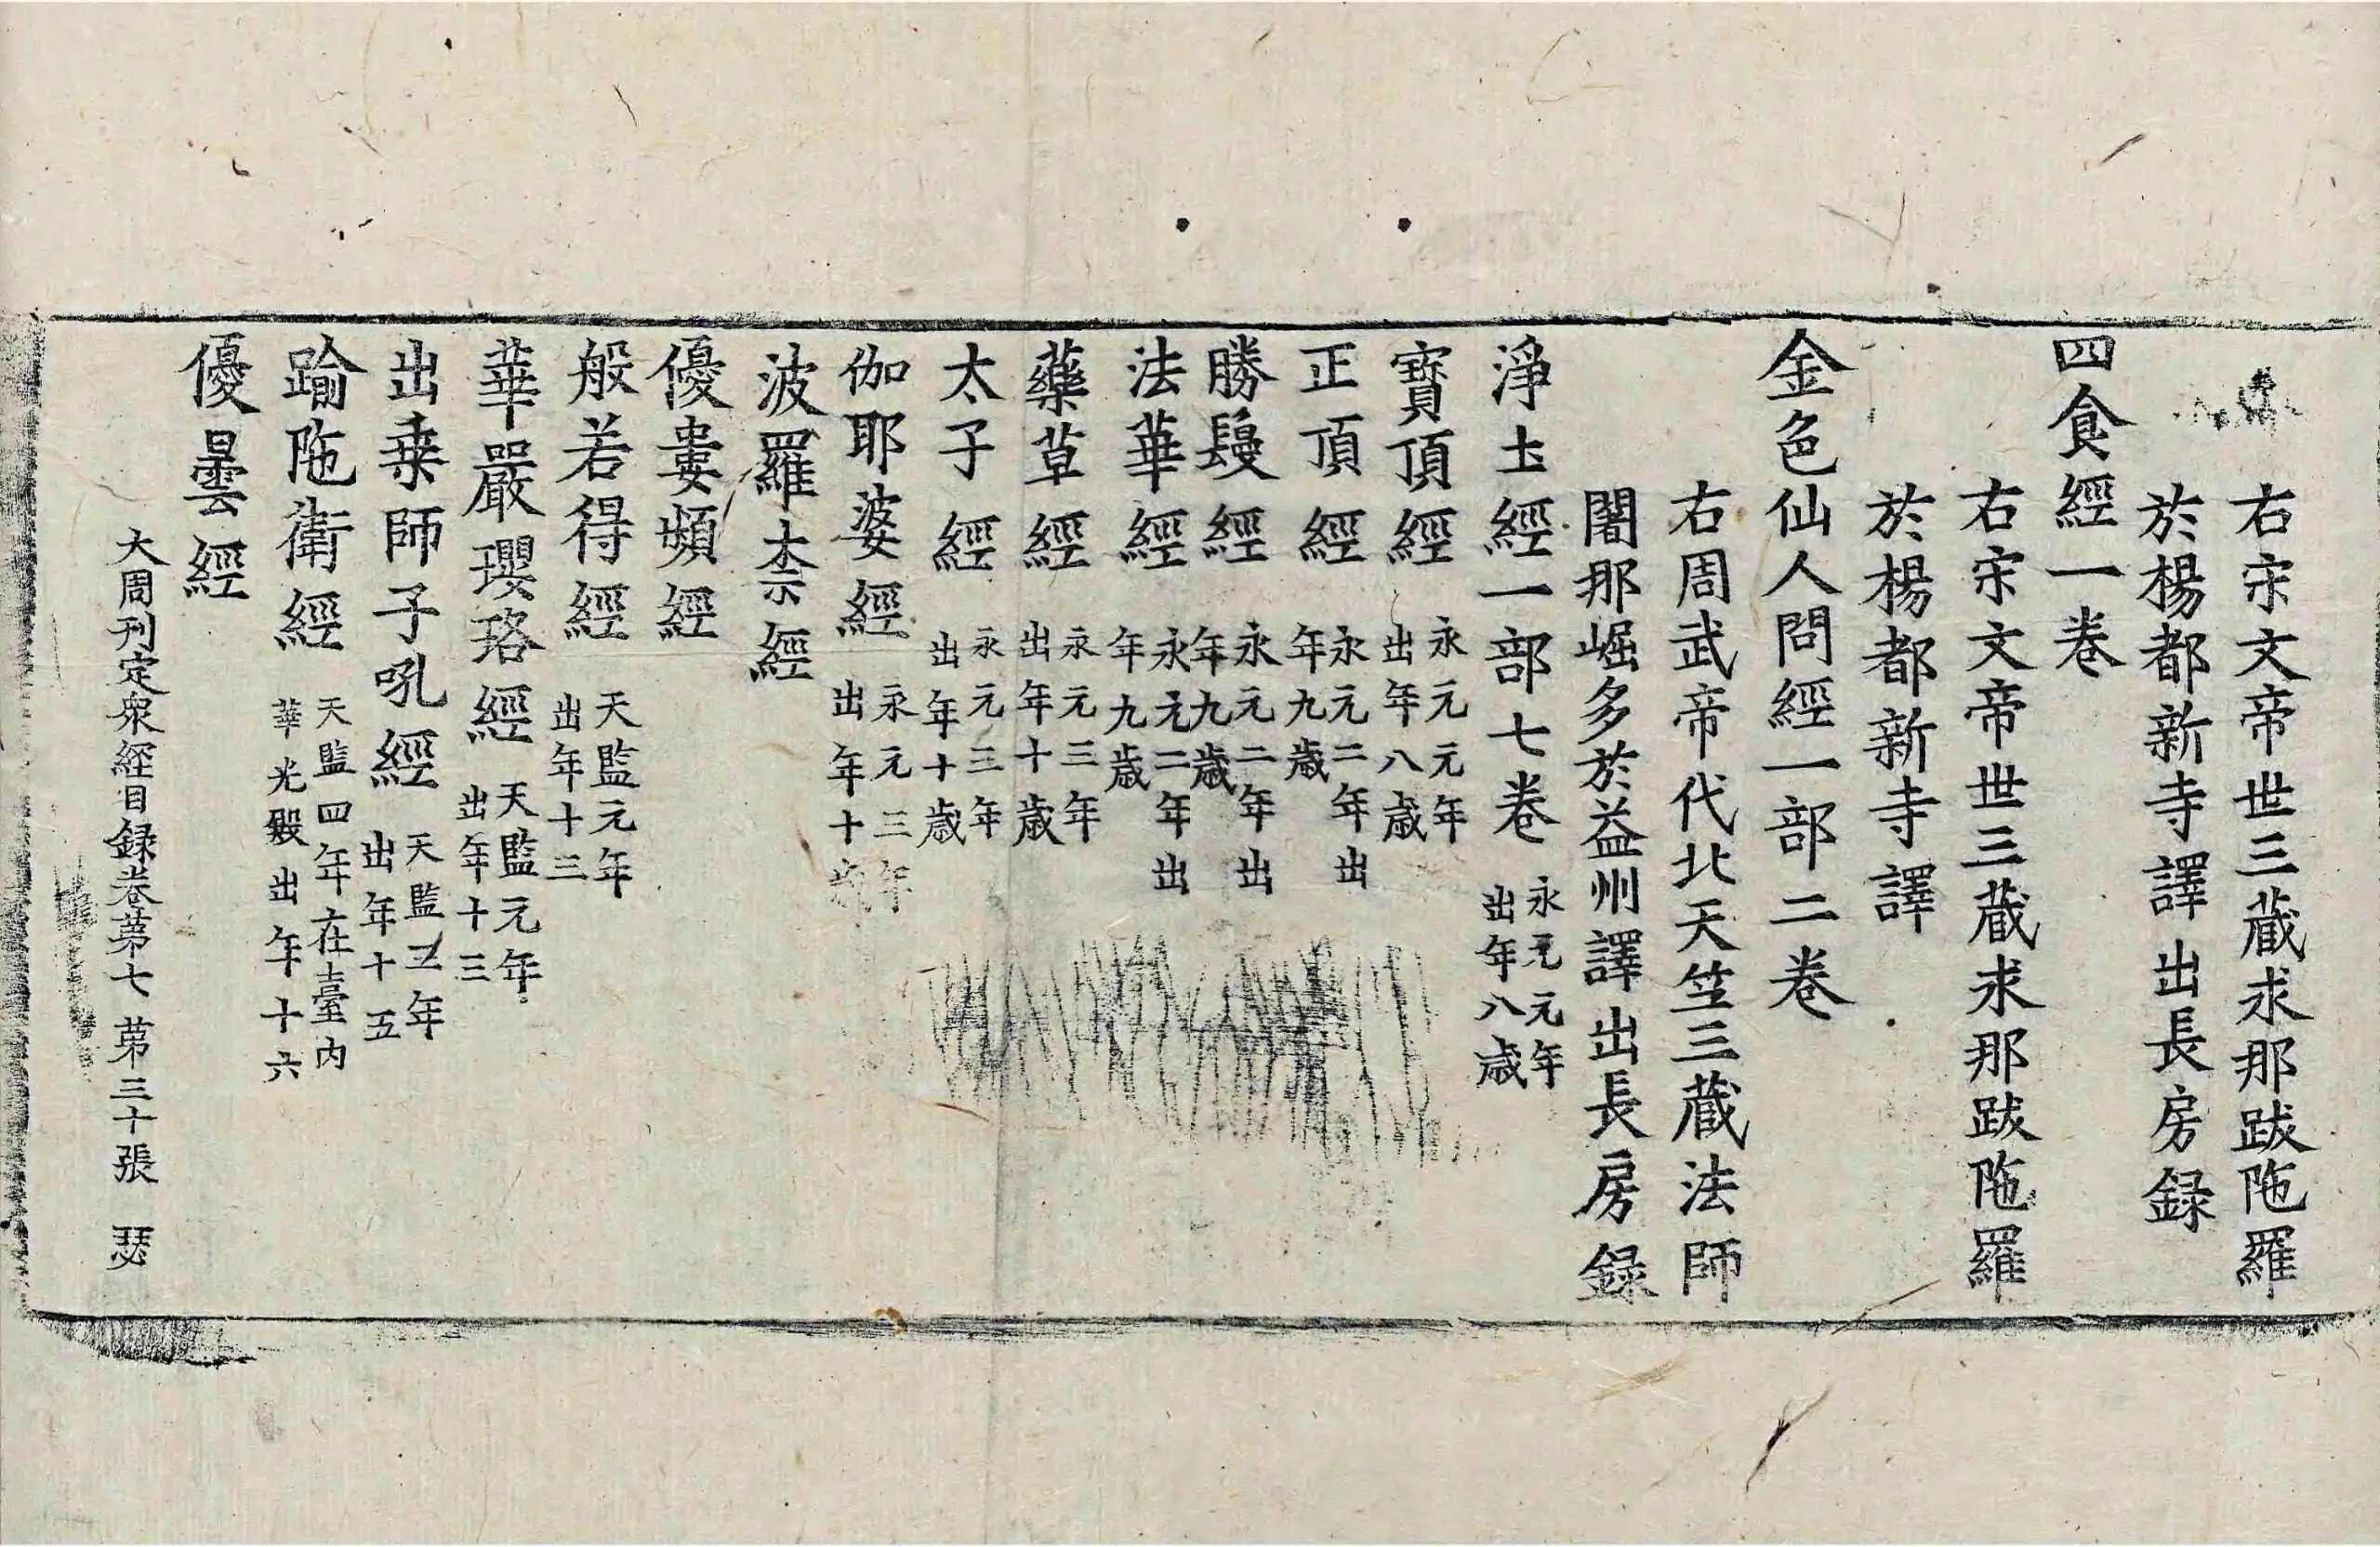 右宋文帝世三蔵求那跋陁羅
於楊都新寺譯出長房録
四食經一卷
右宋文帝世三蔵求那跋陁羅
於楊都新寺譯
金色仙人問經一部二卷
右周武帝代北天竺三蔵法師
闍那崛多於益州譯出長房録
淨土經一部七卷 永元元年
出年八歳
寶頂經 永元元年
出年八歳
正頂經 永元二年出
年九歳
勝鬘經 永元二年出
年九歳
法華經 永元二年出
年九歳
藥草經 永元三年
出年十歳
太子經 永元三年
出年十歳
伽耶婆經 永元三年
出年十歳
波羅柰經
優婁頻經
般若得經 天監元年
出年十三
華嚴瓔珞經 天監元年
出年十三
出乗師子吼經 天監三年
出年十五
踰陁衛經 天監四年在臺内
華光殿出年十六
優曇經
大周刊定衆經目録卷苐七 苐三十張 瑟